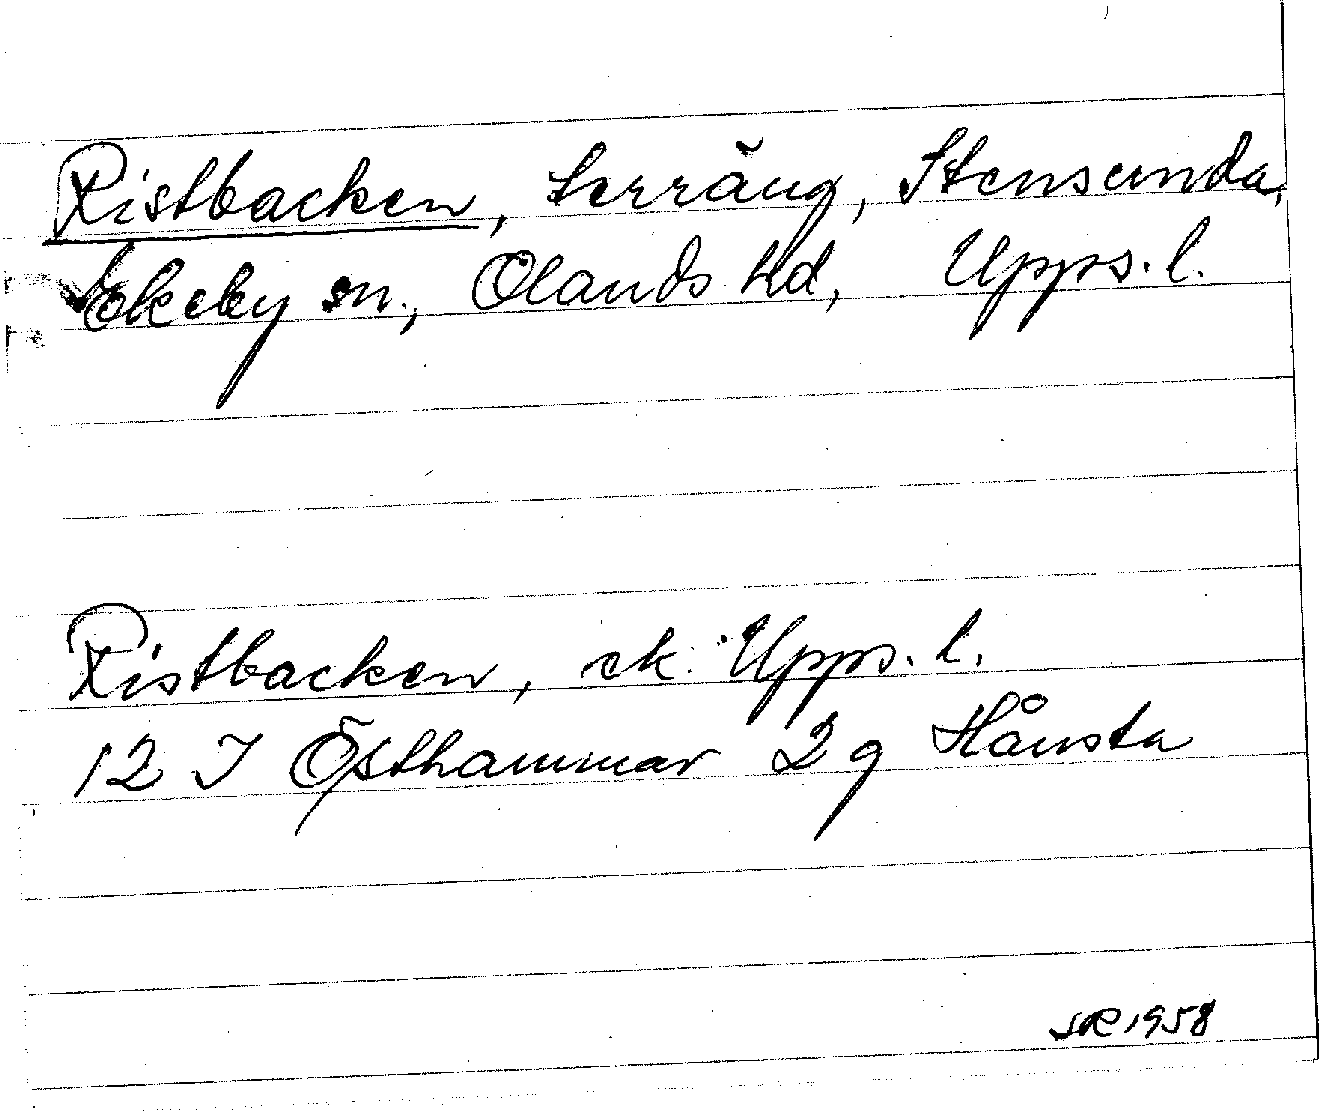 Ristbacken, terräng, Stensunda,
Ekeby sn., Olands hd, Upps. l.
Ristbacken, ek. Upps. l.
12 I Östhammar 2 g Hånsta
SR 1958